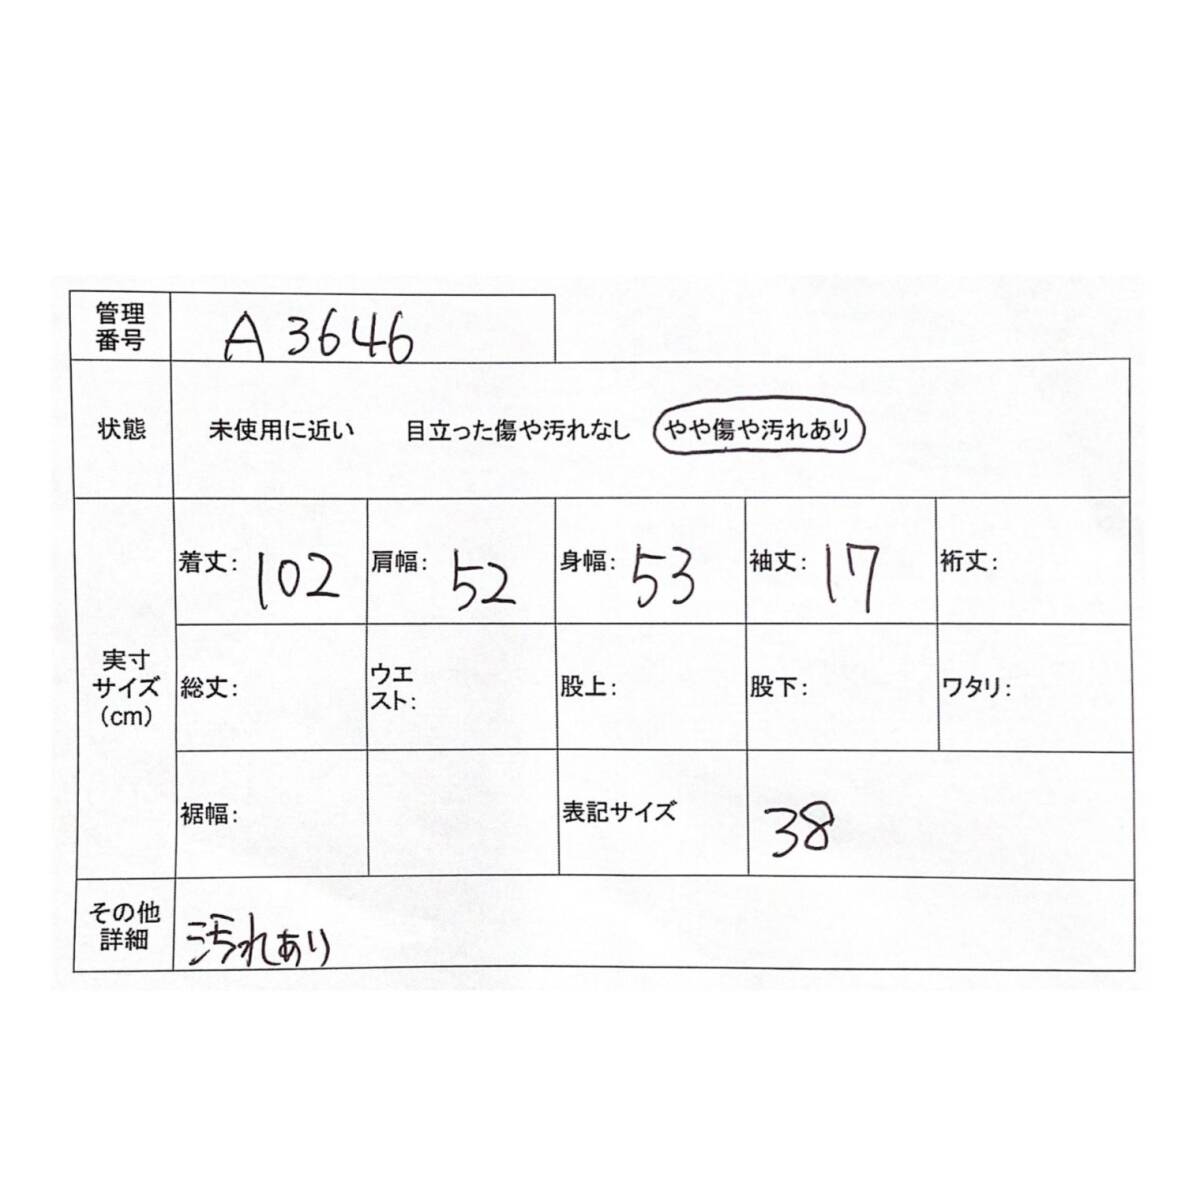 管理
番号
A 3646
状態
未使用に近い 目立った傷や汚れなし やや傷や汚れあり
実寸
サイズ
(cm)
着丈: 102 肩幅: 52 身幅: 53 袖丈: 17 裄丈:
総丈: ウエ
スト: 股上: 股下: ワタリ:
裾幅: 表記サイズ 38
その他
詳細
汚れあり